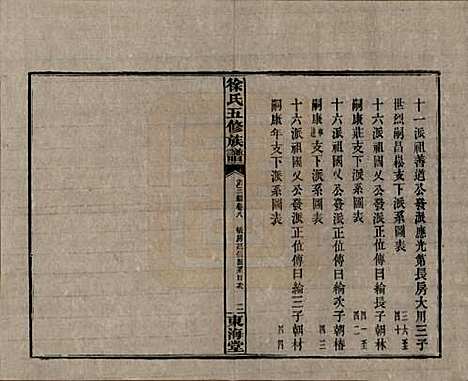 十一派祖善道公發派應光第長房大用三子
世烈嗣昌崧支下派系圖表 三六至四十
十六派祖國乂公發派正位傳曰綸長子朝林
嗣康莊支下派系圖表 四一至四二
十六派祖國乂公發派正位傳曰綸次子朝椿
嗣康支下派系圖表 四三
十六派祖國乂公發派正位傳曰綸三子朝材
嗣康年支下派系圖表 四四
徐氏五修族譜
卷八
二
東海堂